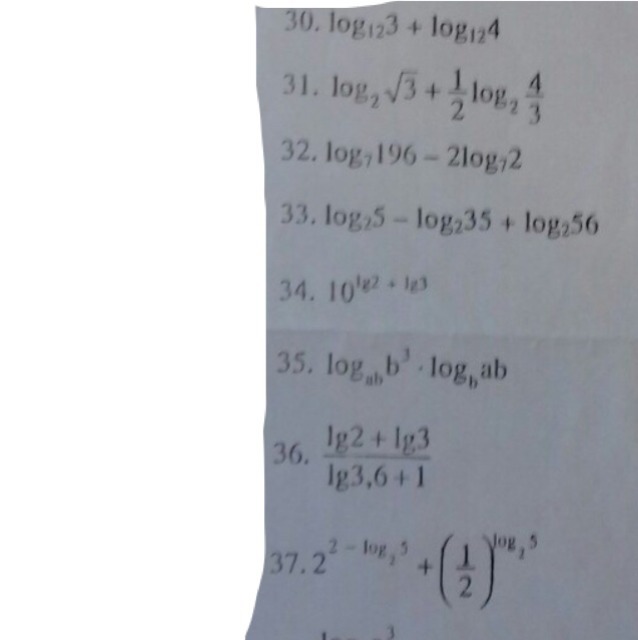 30. log₁₂3 + log₁₂4
31. log₂ √3 + 1/2 log₂ 4/3
32. log₇196 – 2log₇2
33. log₂5 – log₂35 + log₂56
34. 10^(lg2 + lg3)
35. log_ab b³ · log_b ab
36. (lg2 + lg3)/(lg3,6 + 1)
37. 2^(2 – log₂5) + (1/2)^(log₂5)